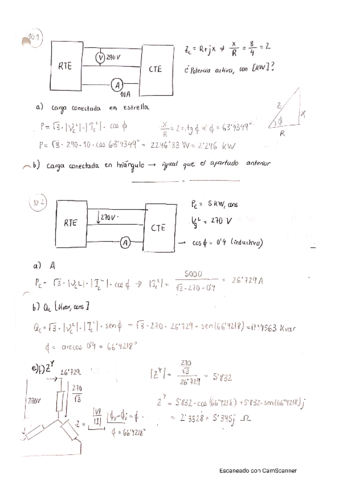 10.1
RTE
V 290V
A
10A
CTE
Z_c = R+jX → X/R = 8/4 = 2
¿Potencia activa, con [KW]?
a) carga conectada en estrella
P = √3 · |V_L| · |I_L| · cos φ
X/R = 2 = tg φ → φ = 63'4349°
P = √3 · 290 · 10 · cos 63'4349° = 2246'33 W = 2'246 KW
Z
X
φ
R
b) Carga conectada en triángulo → igual que el apartado anterior
10.2
RTE
270V
A
CTE
P_c = 5 KW, cons
270 V
cos φ = 0'4 (inductivo)
a) A
P_c = √3 · |V_L| · |I_L| · cos φ → |I_L| = 5000 / √3 · 270 · 0'4 = 26'729 A
b) Q_c [Kvar, cons]
Q_c = √3 · |V_L| · |I_L| · sen φ = √3 · 270 · 26'729 · sen(66'4218) = 11'4563 Kvar
φ = arccos 0'4 = 66'4218°
Z^Y
26'729
270V
270/√3
Z =
φ = 66'4218°
|Z^Y| = 270/√3 / 26'729 = 5'832
Z^Y = 5'832 · cos (66'4218) + 5'832 · sen(66'4218) j
= 2'3328 + 5'345j Ω
Escaneado con CamScanner